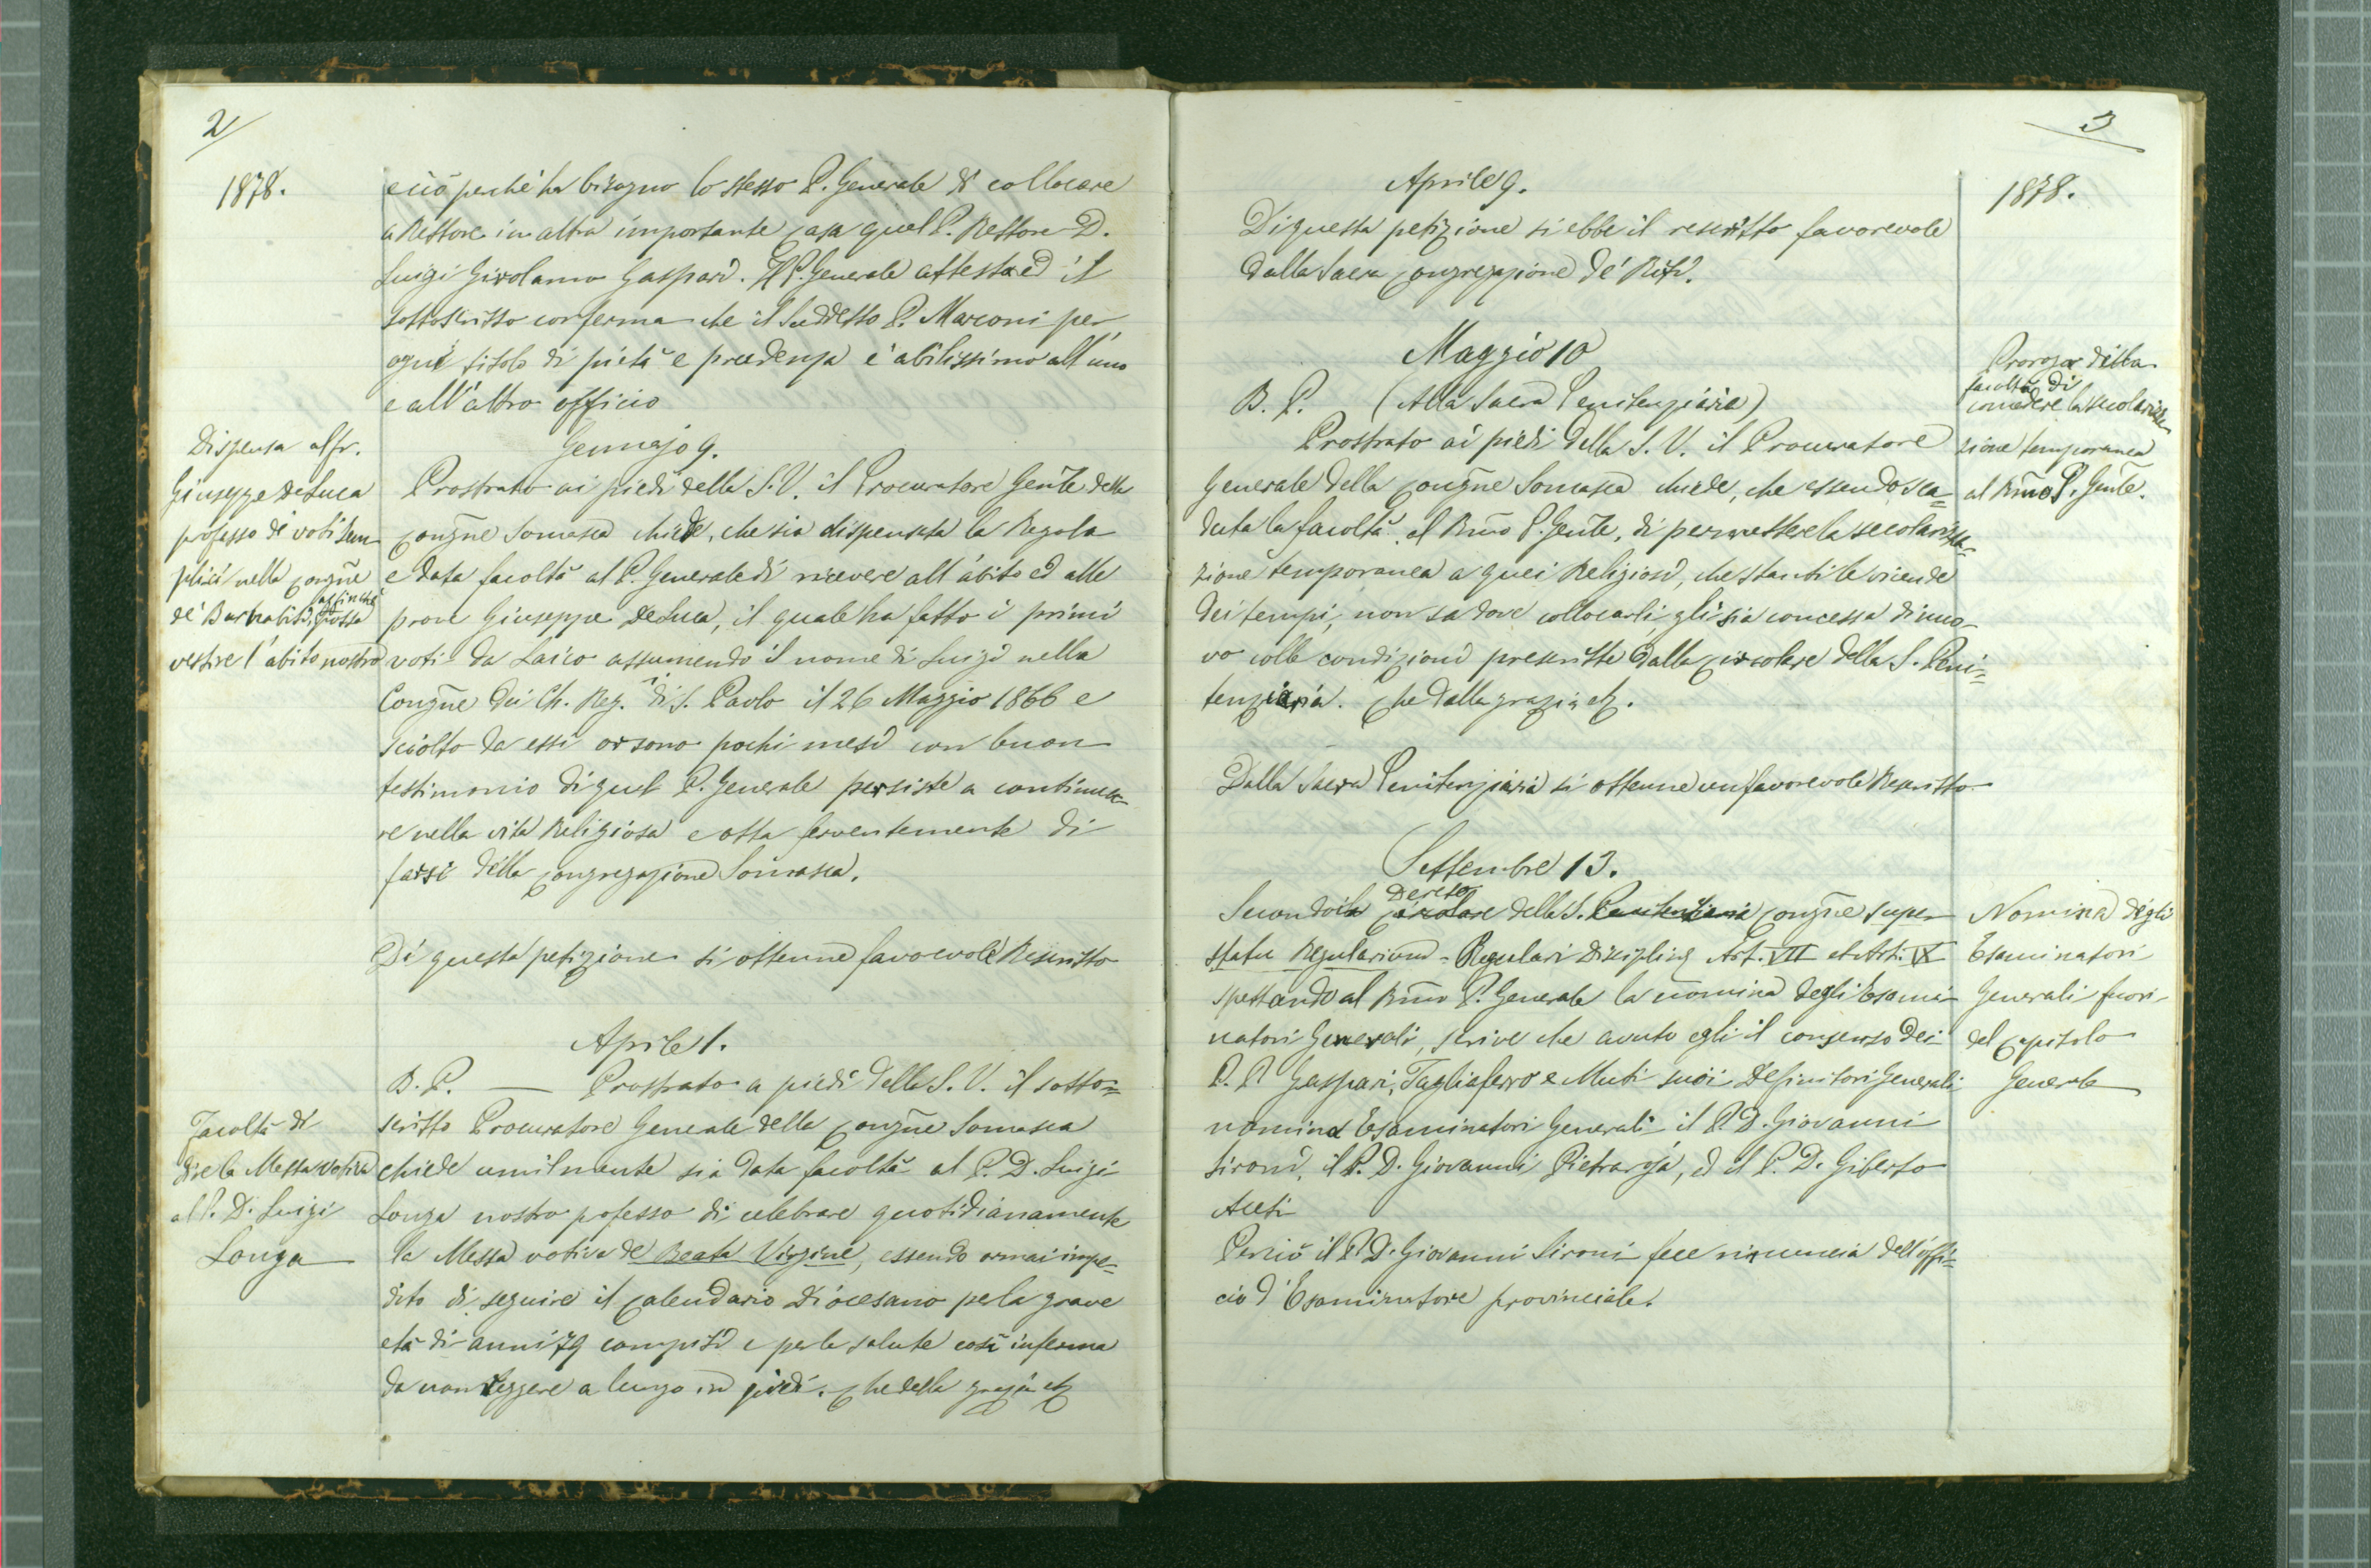 2
1878.
e ciò perchè ha bisogno lo stesso P. Generale di collocare
a Rettore in altra importante Casa quel P. Rettore D.
Luigi Girolamo Gaspari. Il P. Generale attesta ed il
sottoscritto conferma che il suddetto P. Marconi per
ogni titolo di pietà e prudenza è abilissimo all'uno
e all'altro officio
Gennajo 9.
Dispensa al fr.
Giuseppe De Luca
professo di voti sem
plici nella Congñe
de' Barnabiti, affinchè possa
vestire l'abito nostro
Prostrato ai piedi della S. V. il Procuratore Genl̃e della
Congñe Somasca chiede, che sia dispensata la Regola
e data facoltà al P. Generale di ricevere all'abito ed alle
prove Giuseppe De Luca, il quale ha fatto i primi
voti da Laico assumendo il nome di Luigi nella
Congñe dei Ch. Reg. di S. Paolo il 26 Maggio 1866 e
sciolto da essi or sono pochi mesi con buon
testimonio di quel P. Generale persiste a continua-
re nella vita Religiosa e otta ferventemente di
farsi della Congregazione Somasca.
Di questa petizione si ottenne favorevole Rescritto
Aprile 1.
Facoltà di
dire la Messa votiva
al P. D. Luigi
Longa
B. P. — Prostrato a piedi della S. V. il sotto=
scritto Procuratore Generale della Congñe Somasca
chiede umilmente sia data facoltà al P. D. Luigi
Longa nostro professo di celebrare quotidianamente
la Messa votiva de Beata Virgine, essendo ormai impe=
dito di seguire il Calendario Diocesano per la grave
età di anni 79 compiti e per la salute così inferma
da non reggere a lungo in piedi. Che della grazia etc
3
1878.
Aprile 9.
Di questa petizione si ebbe il rescritto favorevole
dalla Sacra Congregazione de' Riti.
Maggio 10
Proroga della
facoltà di
concedere la secolarizza
zione temporanea
al Rm̃o P. Genl̃e.
B. P. (Alla Sacra Penitenziaria)
Prostrato ai piedi della S. V. il Procuratore
Generale della Congñe Somasca chiede, che essendo sca=
duta la facoltà al Rm̃o P. Genl̃e, di permettere la secolarizza=
zione temporanea a quei Religiosi, che stanti le vicende
dei tempi, non sa dove collocarli, gli sia concessa di nuo-
vo colle condizioni prescritte dalla Circolare della S. Peni=
tenziaria. Che della grazia etc.
Dalla Sacra Penitenziaria si ottenne un favorevole Rescritto
Settembre 13.
Nomina degli
Esaminatori
Generali fuori
del Capitolo
Generale
Decreto
Secondo il Circolare della S. Penitenziaria Congñe super
statu Regularium - Regulari Disciplinę Art. VII et Art. IX
spettando al Rm̃o P. Generale la nomina degli Esami-
natori Generali, scrive che avuto egli il consenso dei
P. P. Gaspari, Tagliaferro e Muti suoi Definitori Generali
nomina Esaminatori Generali il P. D. Giovanni
Sironi, il P. D. Giovanni Pietraroja, ed il P. D. Giberto
Aceti
Perciò il P. D. Giovanni Sironi fece rinuncia dell'offi=
cio d'Esaminatore provinciale.